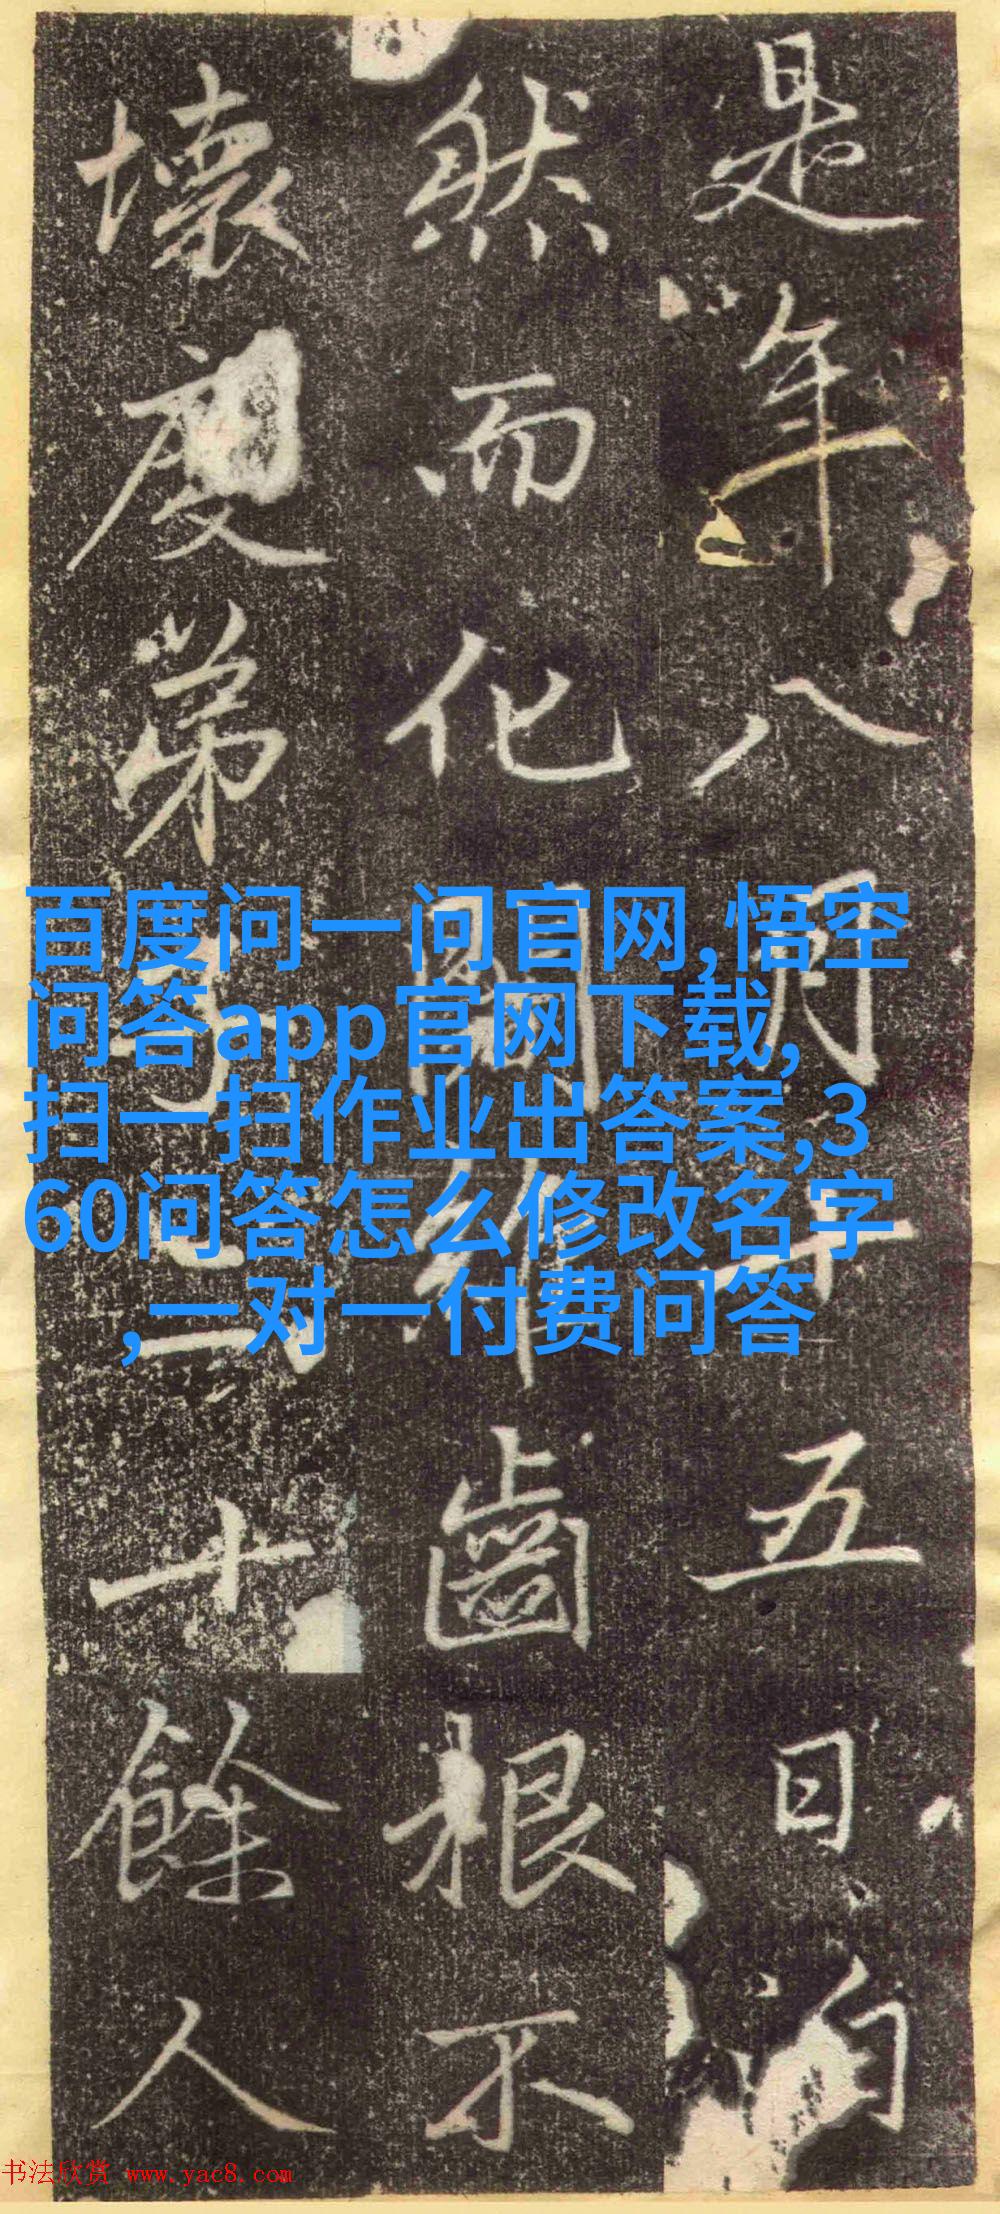 是年八月十五日泊
然而化闍維齒根不
壞度苐子二十餘人
百度问一问官网,悟空
问答app官网下载,
扫一扫作业出答案,3
60问答怎么修改名字
,一对一付费问答
书法欣赏 www.yac8.com